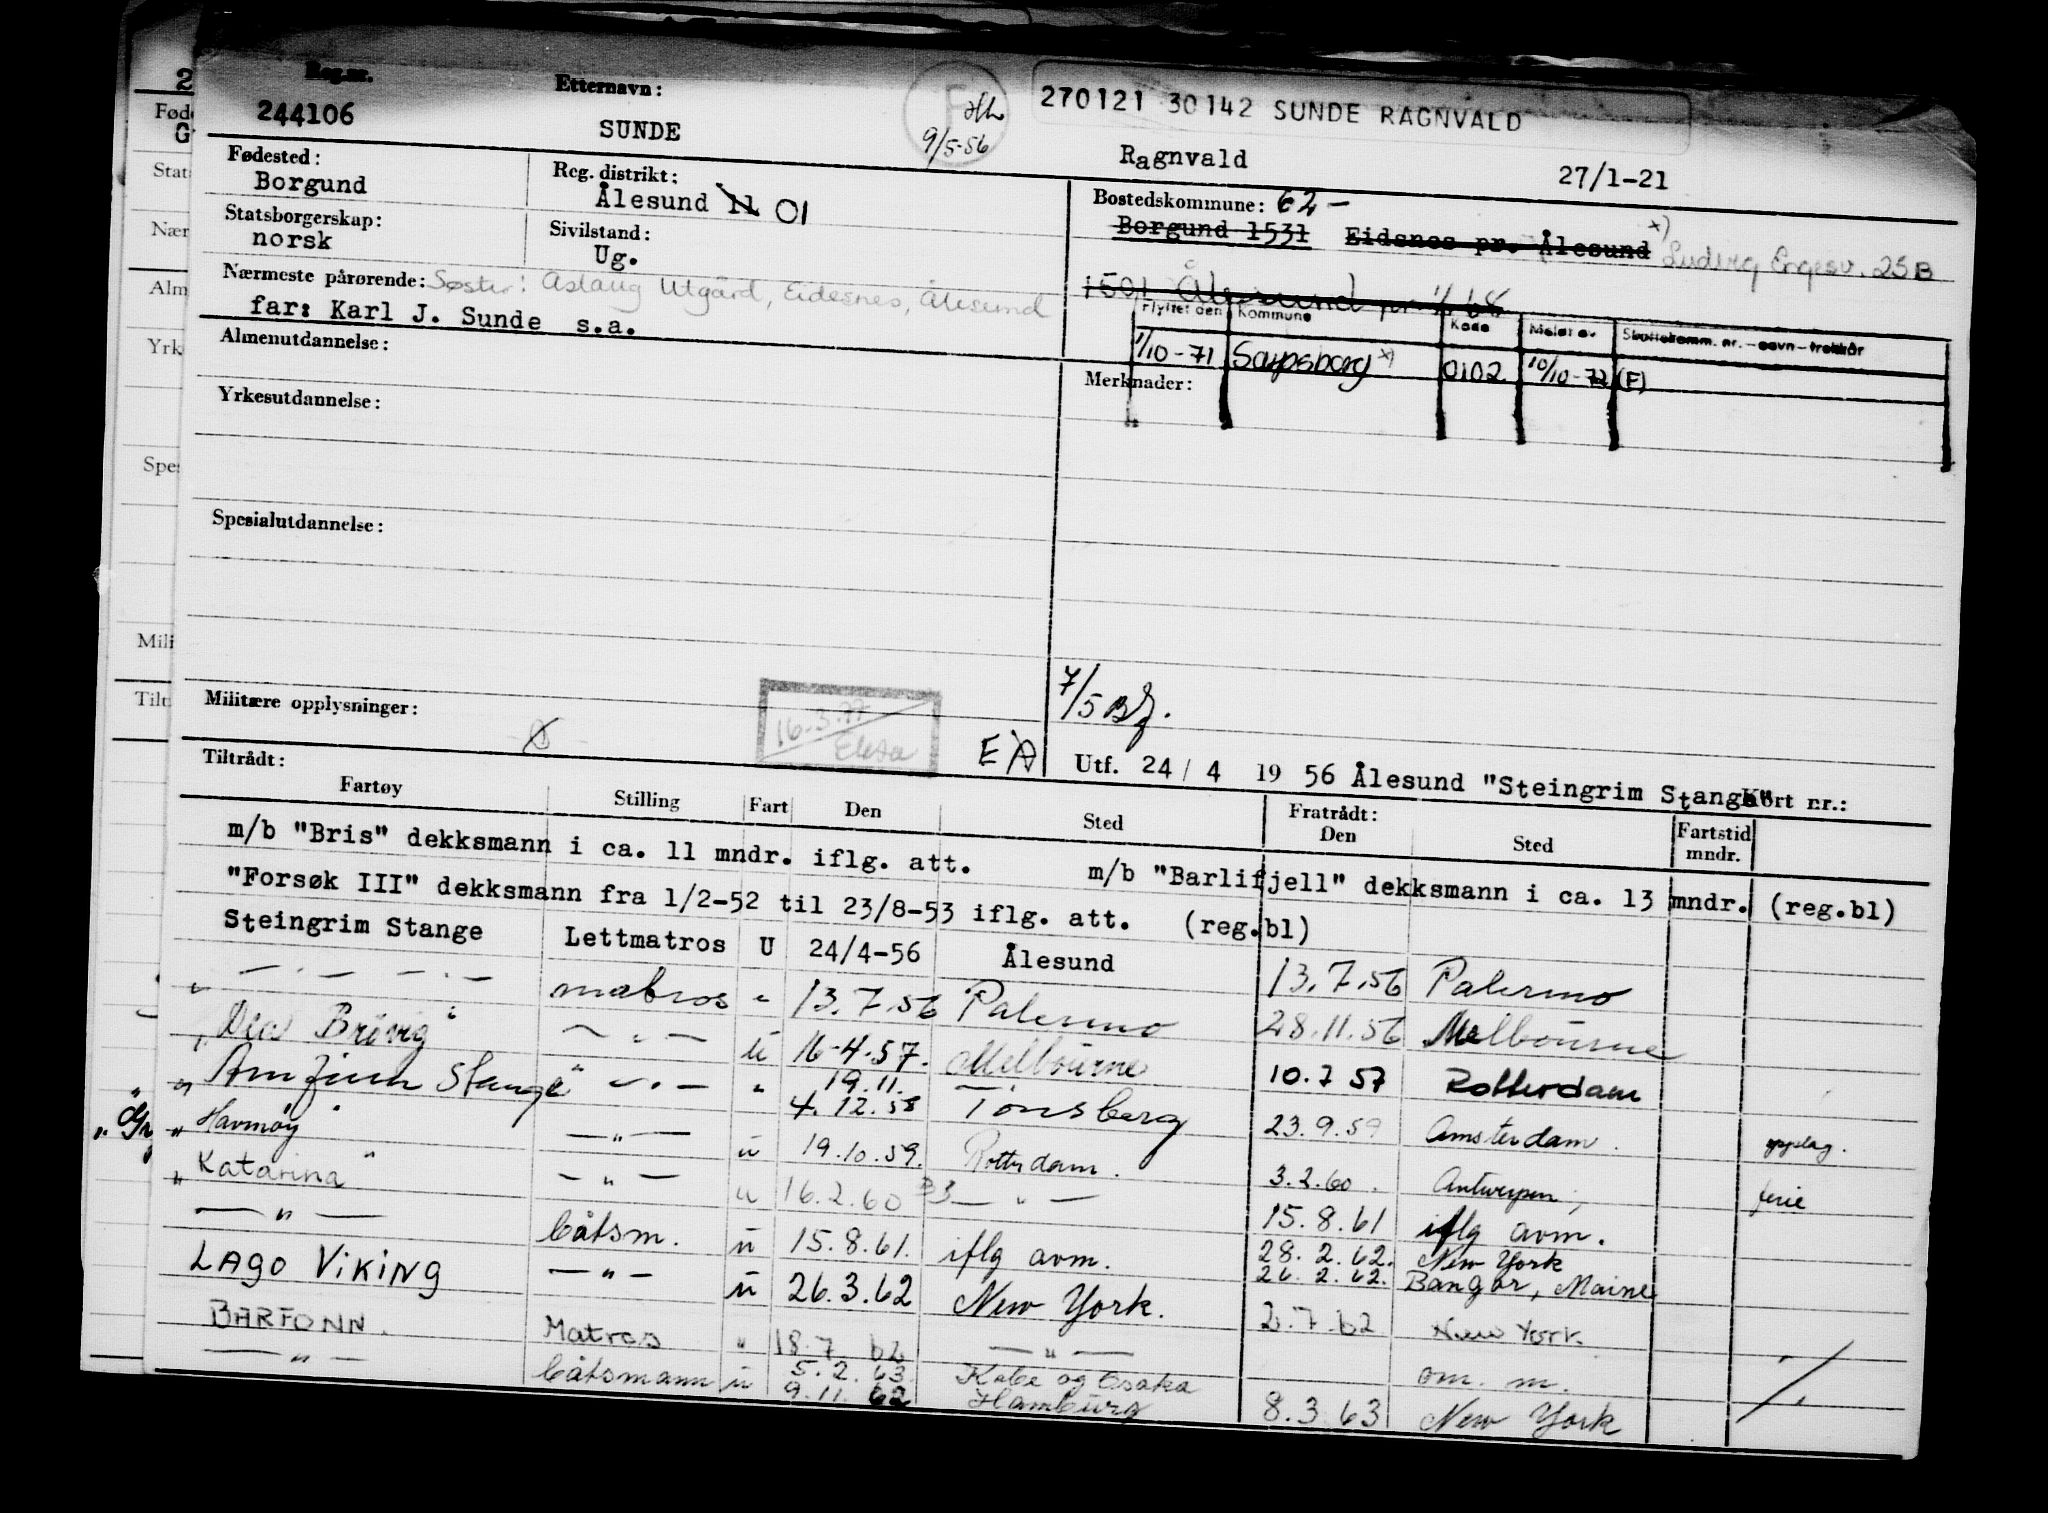 Reg.nr. Etternavn: 270121 30142 SUNDE RAGNVALD
244106 SUNDE 9/5-56 Ragnvald 27/1-21
Fødested: Reg. distrikt: Bostedskommune: 62-
Borgund Ålesund 11 01 Borgund 1531 Eidsnes pr. Ålesund x) Ludvig Engesv. 25B
Statsborgerskap: Sivilstand:
norsk Ug. 1501 Ålesund pr 1/1 68
Nærmeste pårørende: Søster: Aslaug Utgård, Eidesnes, Ålesund
far: Karl J. Sunde s.a.
Flyttet den Kommune Kode Meldt av Skattekomm. nr. – navn – trekkår
1/10-71 Sarpsborg x) 0102 10/10-72 (F)
Almenutdannelse: Merknader:
Yrkesutdannelse:
Spesialutdannelse:
7/5
Militære opplysninger: 16.3.77
Utf. 24/4 1956 Ålesund "Steingrim Stange" Kort nr.:
Tiltrådt: Fratrådt:
Fartøy Stilling Fart Den Sted Den Sted Fartstid mndr.
m/b "Bris" dekksmann i ca. 11 mndr. iflg. att. m/b "Barlifjell" dekksmann i ca. 13 mndr. (reg.bl)
"Forsøk III" dekksmann fra 1/2-52 til 23/8-53 iflg. att. (reg.bl)
Steingrim Stange Lettmatros U 24/4-56 Ålesund 13.7.56 Palermo
— " — matros " 13.7.56 Palermo 28.11.56 Melbourne
"Dea Brøvig" — " — u 16.4.57. Melbourne 10.7 57 Rotterdam
"Arnfinn Stange" — " — " 19.11. 4.12.58 Tønsberg 23.9.59 Amsterdam. opplag.
"Havmøy" — " — u 19.10.59. Rotterdam. 3.2.60. Antwerpen, ferie
"Katarina" — " — u 16.2.60 — " — 15.8.61 iflg avm.
— " — båtsm. u 15.8.61. iflg avm. 28.2.62. New York
26.2.62. Bangor, Maine
LAGO VIKING — " — u 26.3.62 New York. 2.7.62 New York
BARFONN. Matros " 18.7.62 — " — om. m.
— " — båtsmann u 5.2.63. Kobe og Osaka
9.11.62 Hamburg 8.3.63 New York